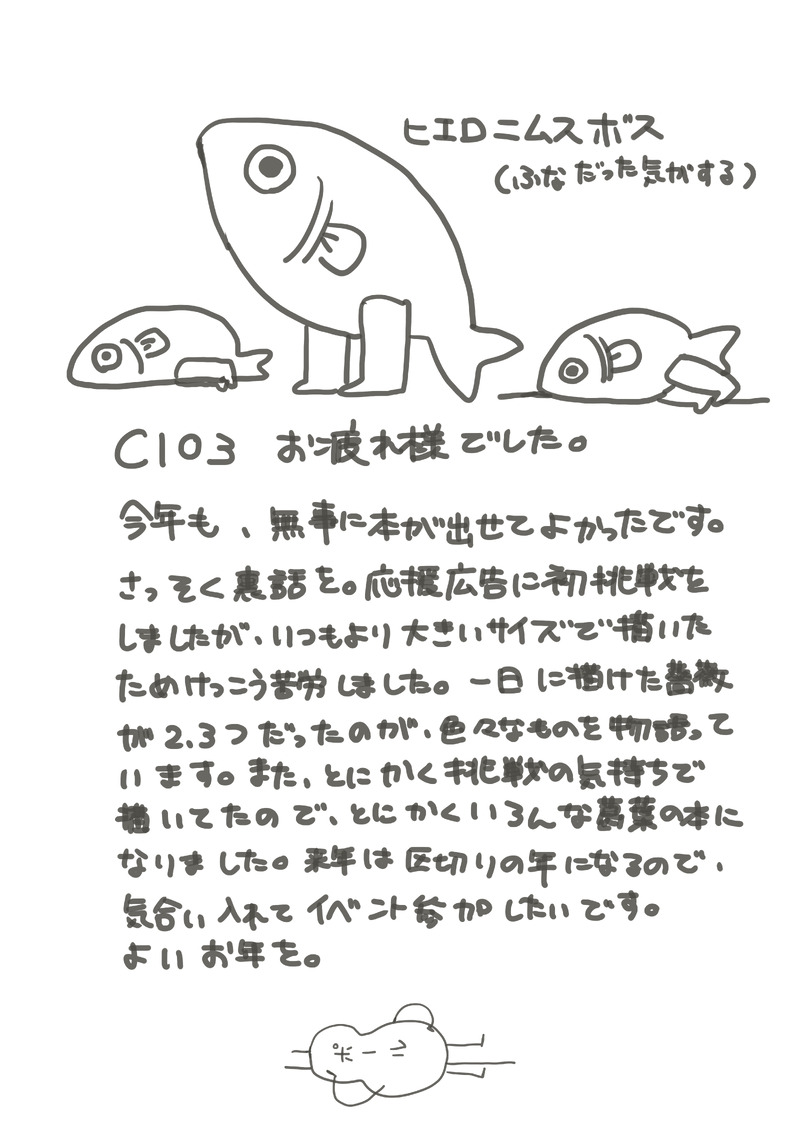 ヒエロニムスボス
(ふなだった気がする)
C103 お疲れ様でした。
今年も、無事に本が出せてよかったです。
さっそく裏話を。応援広告に初挑戦を
しましたが、いつもより大きいサイズで描いた
ためけっこう苦労しました。一日に描けた薔薇
が2.3つだったのが、色々なものを物語って
います。また、とにかく挑戦の気持ちで
描いてたので、とにかくいろんな葛葉の本に
なりました。来年は区切りの年になるので、
気合い入れてイベント参加したいです。
よいお年を。